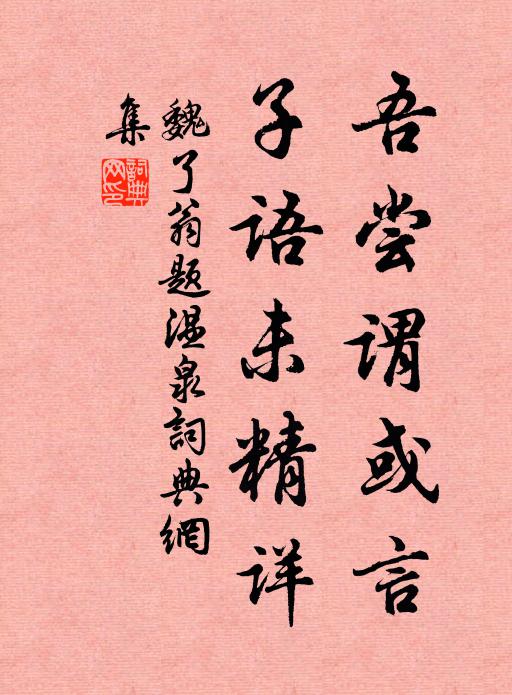 吾尝谓或言
子语未精详
魏了翁题温泉詞典網
集
詞典網印